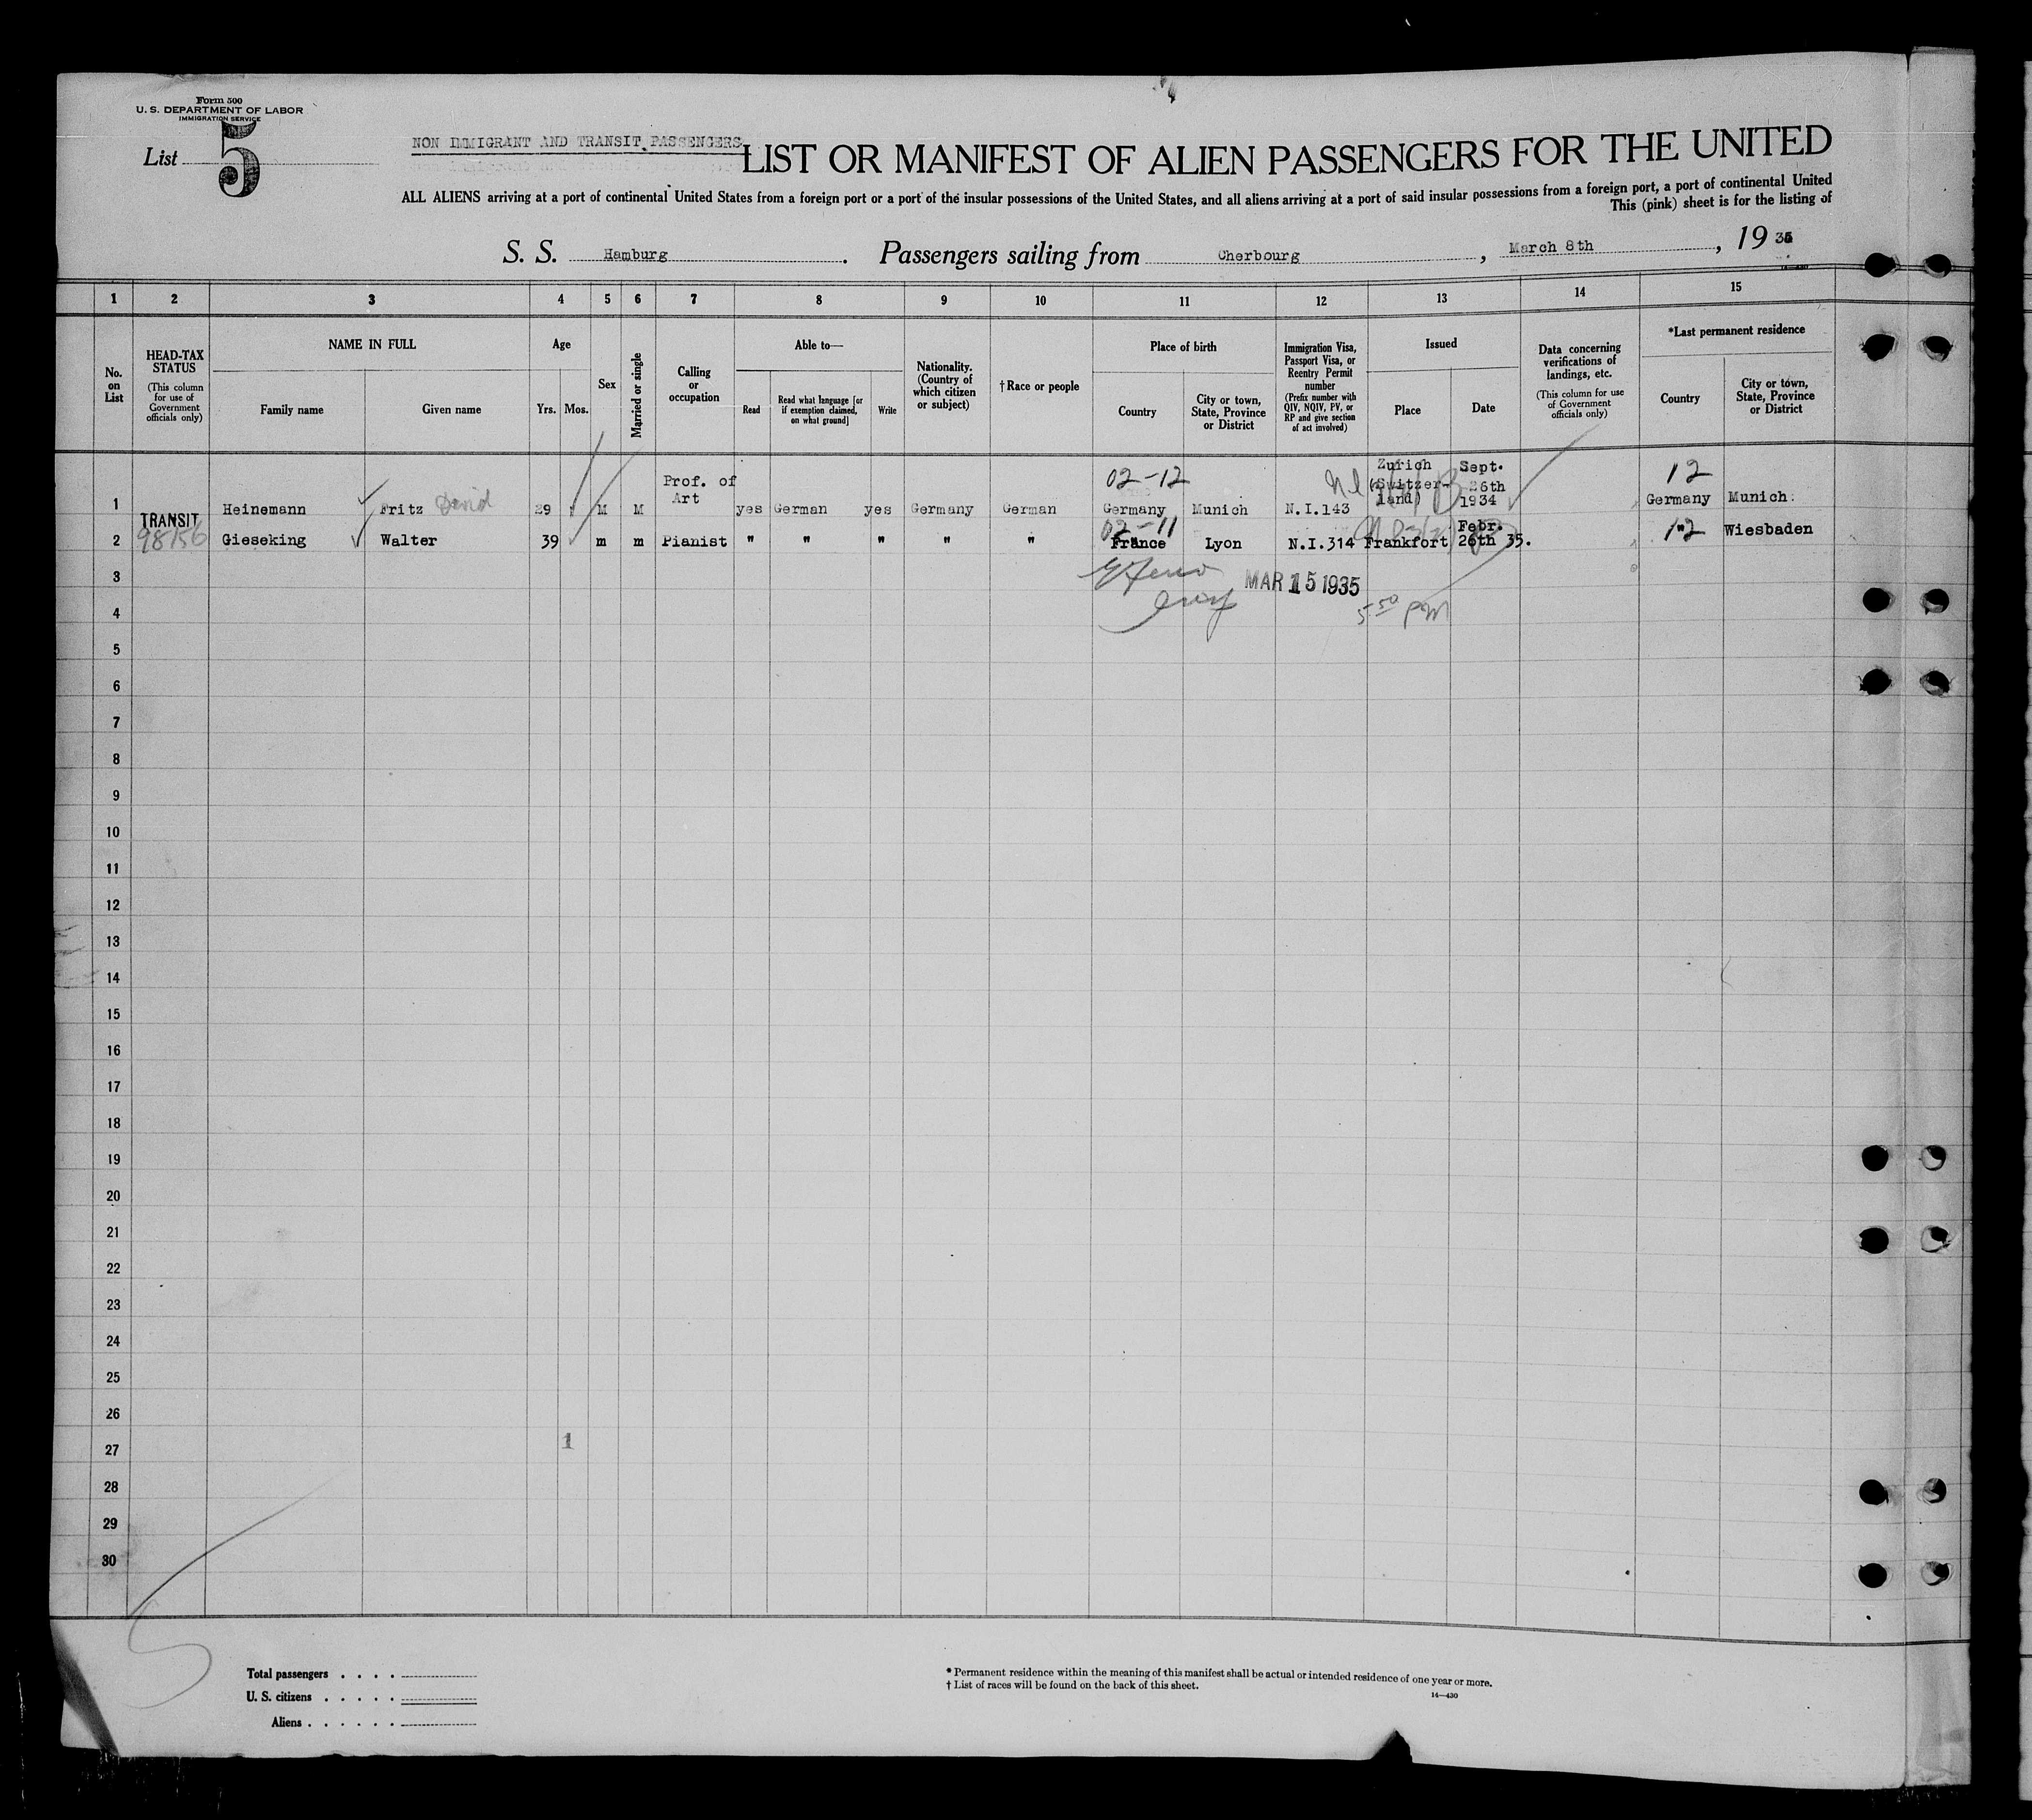 Form 500
U. S. DEPARTMENT OF LABOR
IMMIGRATION SERVICE
List 5
NON IMMIGRANT AND TRANSIT PASSENGERS
LIST OR MANIFEST OF ALIEN PASSENGERS FOR THE UNITED
ALL ALIENS arriving at a port of continental United States from a foreign port or a port of the insular possessions of the United States, and all aliens arriving at a port of said insular possessions from a foreign port, a port of continental United
This (pink) sheet is for the listing of
S. S. Hamburg. Passengers sailing from Cherbourg, March 8th, 19 35
1 2 3 4 5 6 7 8 9 10 11 12 13 14 15
No. on List
HEAD-TAX STATUS
(This column for use of Government officials only)
NAME IN FULL
Family name
Given name
Age
Yrs. Mos.
Sex
Married or single
Calling or occupation
Able to—
Read
Read what language [or if exemption claimed, on what ground]
Write
Nationality. (Country of which citizen or subject)
†Race or people
Place of birth
Country
City or town, State, Province or District
Immigration Visa, Passport Visa, or Reentry Permit number
(Prefix number with QIV, NQIV, PV, or RP and give section of act involved)
Issued
Place
Date
Data concerning verifications of landings, etc.
(This column for use of Government officials only)
*Last permanent residence
Country
City or town, State, Province or District
02-12
12
1 Heinemann Fritz David 29 M M Prof. of Art yes German yes Germany German Germany Munich N.I.143 Zurich (Switzerland) Sept. 26th 1934 Germany Munich
TRANSIT
98156
02-11
12
2 Gieseking Walter 39 m m Pianist " " " " " France Lyon N.I.314 Frankfort Febr. 26th 35. " Wiesbaden
MAR 15 1935
5 50 PM
3
4
5
6
7
8
9
10
11
12
13
14
15
16
17
18
19
20
21
22
23
24
25
26
27 1
28
29
30
Total passengers . . . .
U. S. citizens . . . . .
Aliens . . . . . .
* Permanent residence within the meaning of this manifest shall be actual or intended residence of one year or more.
† List of races will be found on the back of this sheet.
14—430